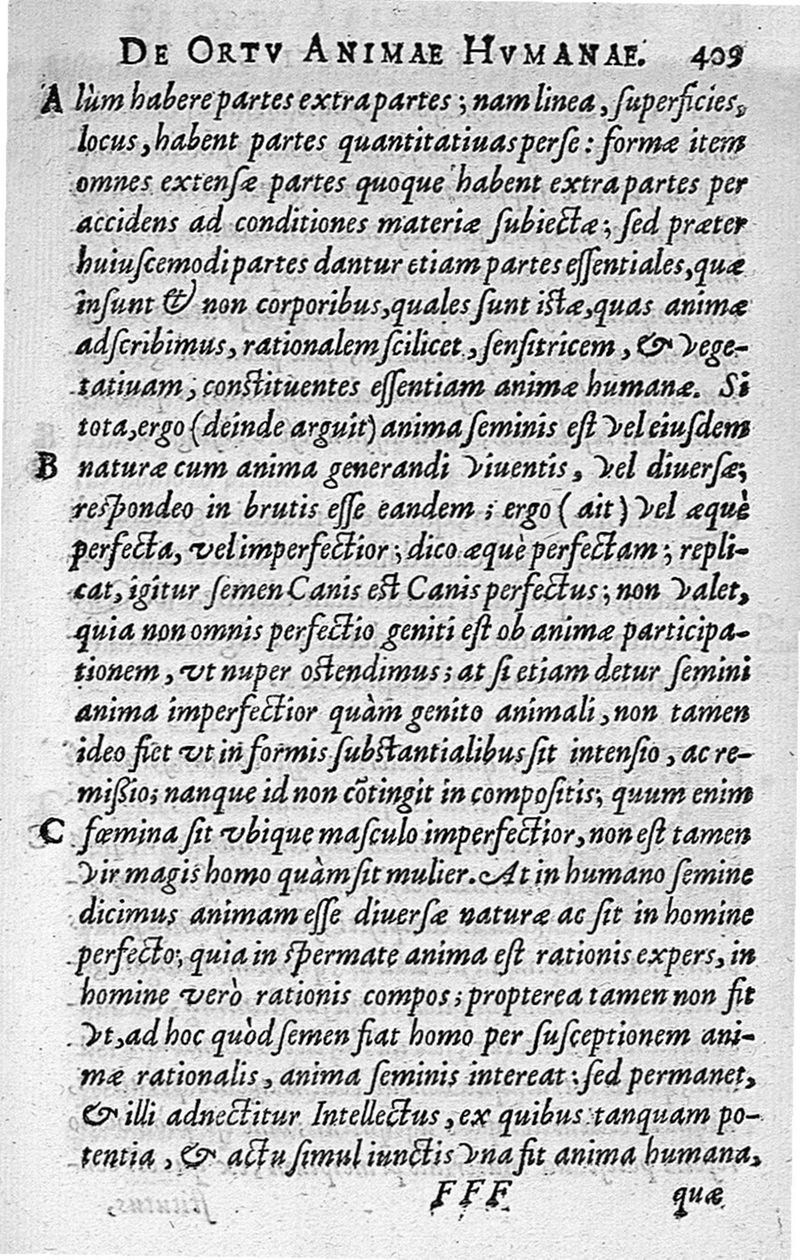 DE ORTV ANIMAE HVMANAE. 409
A lùm habere partes extra partes ; nam linea, ſuperficies,
locus, habent partes quantitatiuas per ſe : formæ item
omnes extenſæ partes quoque habent extra partes per
accidens ad conditiones materiæ ſubiectæ ; ſed præter
huiuſcemodi partes dantur etiam partes eſſentiales, quæ
inſunt & non corporibus, quales ſunt iſtæ, quas animæ
adſcribimus, rationalem ſcilicet, ſenſitricem, & vege-
tatiuam, conſtituentes eſſentiam animæ humanæ. Si
tota, ergo (deinde arguit) anima ſeminis eſt vel eiuſdem
B naturæ cum anima generandi viuentis, vel diuerſæ;
reſpondeo in brutis eſſe eandem ; ergo ( ait ) vel æquè
perfecta, vel imperfectior ; dico æquè perfectam ; repli-
cat, igitur ſemen Canis eſt Canis perfectus ; non valet,
quia non omnis perfectio geniti eſt ob animæ participa-
tionem, vt nuper oſtendimus ; at ſi etiam detur ſemini
anima imperfectior quàm genito animali, non tamen
ideo fiet vt in formis ſubſtantialibus ſit intenſio, ac re-
miſſio; nanque id non cõtingit in compoſitis; quum enim
C fœmina ſit vbique maſculo imperfectior, non eſt tamen
vir magis homo quàm ſit mulier. At in humano ſemine
dicimus animam eſſe diuerſæ naturæ ac ſit in homine
perfecto, quia in ſpermate anima eſt rationis expers, in
homine verò rationis compos ; propterea tamen non fit
vt, ad hoc quòd ſemen fiat homo per ſuſceptionem ani-
mæ rationalis, anima ſeminis intereat : ſed permanet,
& illi adnectitur Intellectus, ex quibus tanquam po-
tentia, & actu ſimul iunctis vna fit anima humana,
FFF quæ